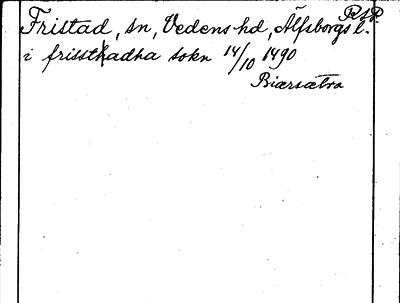 RAP
Fristad, sn, Vedens hd, Älfsborgs l.
i frissthadha sokn 14/10 1490
Biærsætra